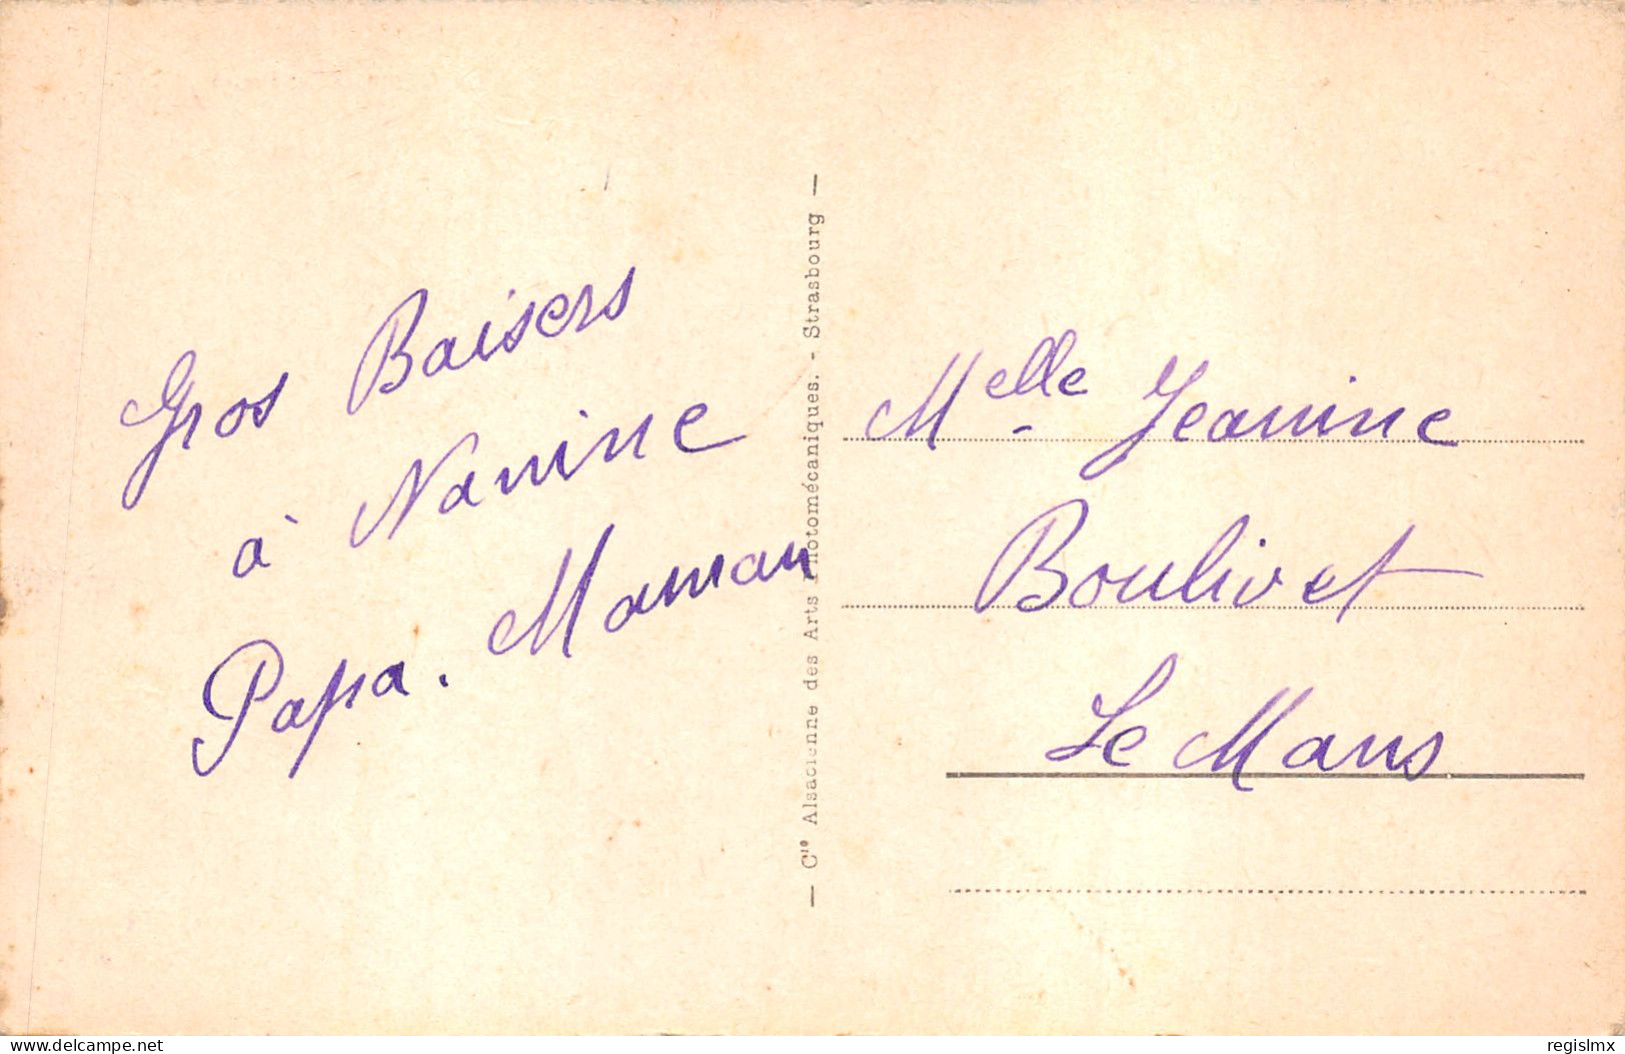 Gros Baisers
à Nanine
Papa. Maman
— Cie Alsacienne des Arts Photomécaniques. - Strasbourg —
Melle Jeanine
Boulivet
Le Mans
www.delcampe.net
regislmx